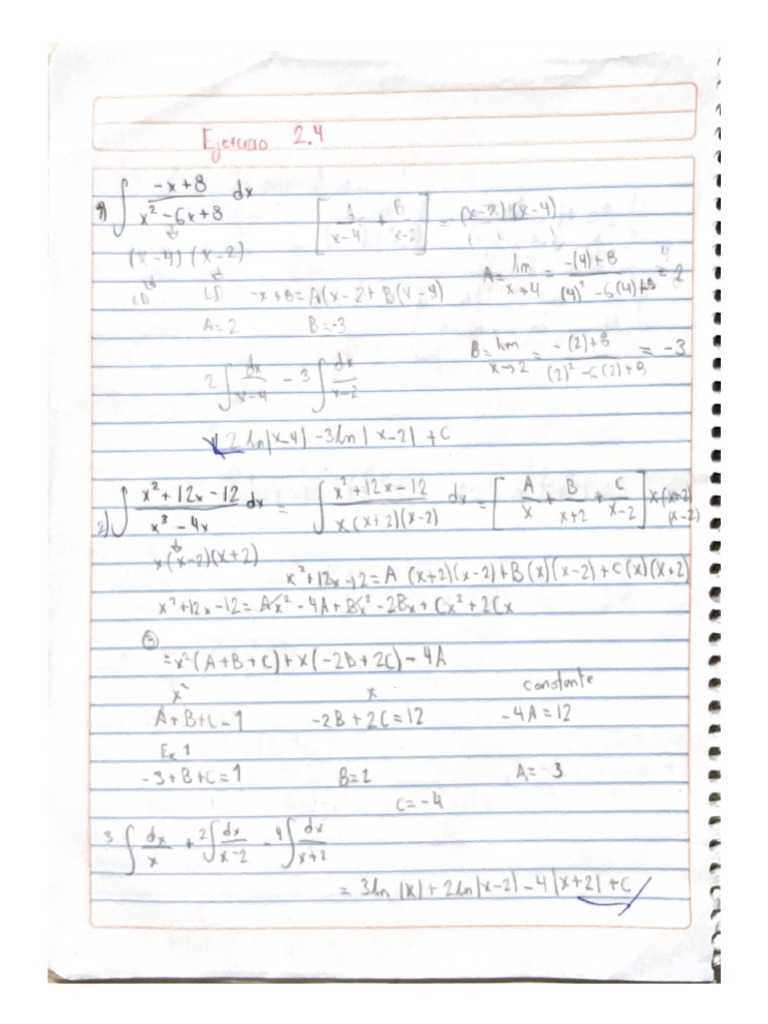 Ejercicio 2.4
1) ∫ -x+8 / x² -6x+8 dx
[ A / x-4 + B / x-2 ] = (x-2)(x-4)
(x-4)(x-2)
LD LD -x+8=A(x-2+B(x-4)
A= lim x→4 = -(4)+8 / (4)² -6(4)+8 = 2
A=2 B=-3
B= lim x→2 = -(2)+8 / (2)² -6(2)+8 = -3
2∫ dx / x-4 - 3∫ dx / x-2
2 ln|x-4| -3ln|x-2| +C
2) ∫ x²+12x-12 / x³-4x dx = ∫ x²+12x-12 / x(x+2)(x-2) dx = [ A / x + B / x+2 + C / x-2 ] x(x+2)(x-2)
x(x-2)(x+2)
x²+12x-12=A (x+2)(x-2)+B(x)(x-2)+C(x)(x+2)
x²+12x-12= Ax² -4A+Bx² -2Bx+Cx²+2Cx
=x²(A+B+C)+x(-2B+2C)-4A
x² x constante
A+B+C=1 -2B+2C=12 -4A=12
Ec 1
-3+B+C=1 B=2 A=-3
C=-4
3∫ dx / x + 2∫ dx / x-2 -4∫ dx / x+2
= 3ln |x|+2ln|x-2| -4|x+2| +C